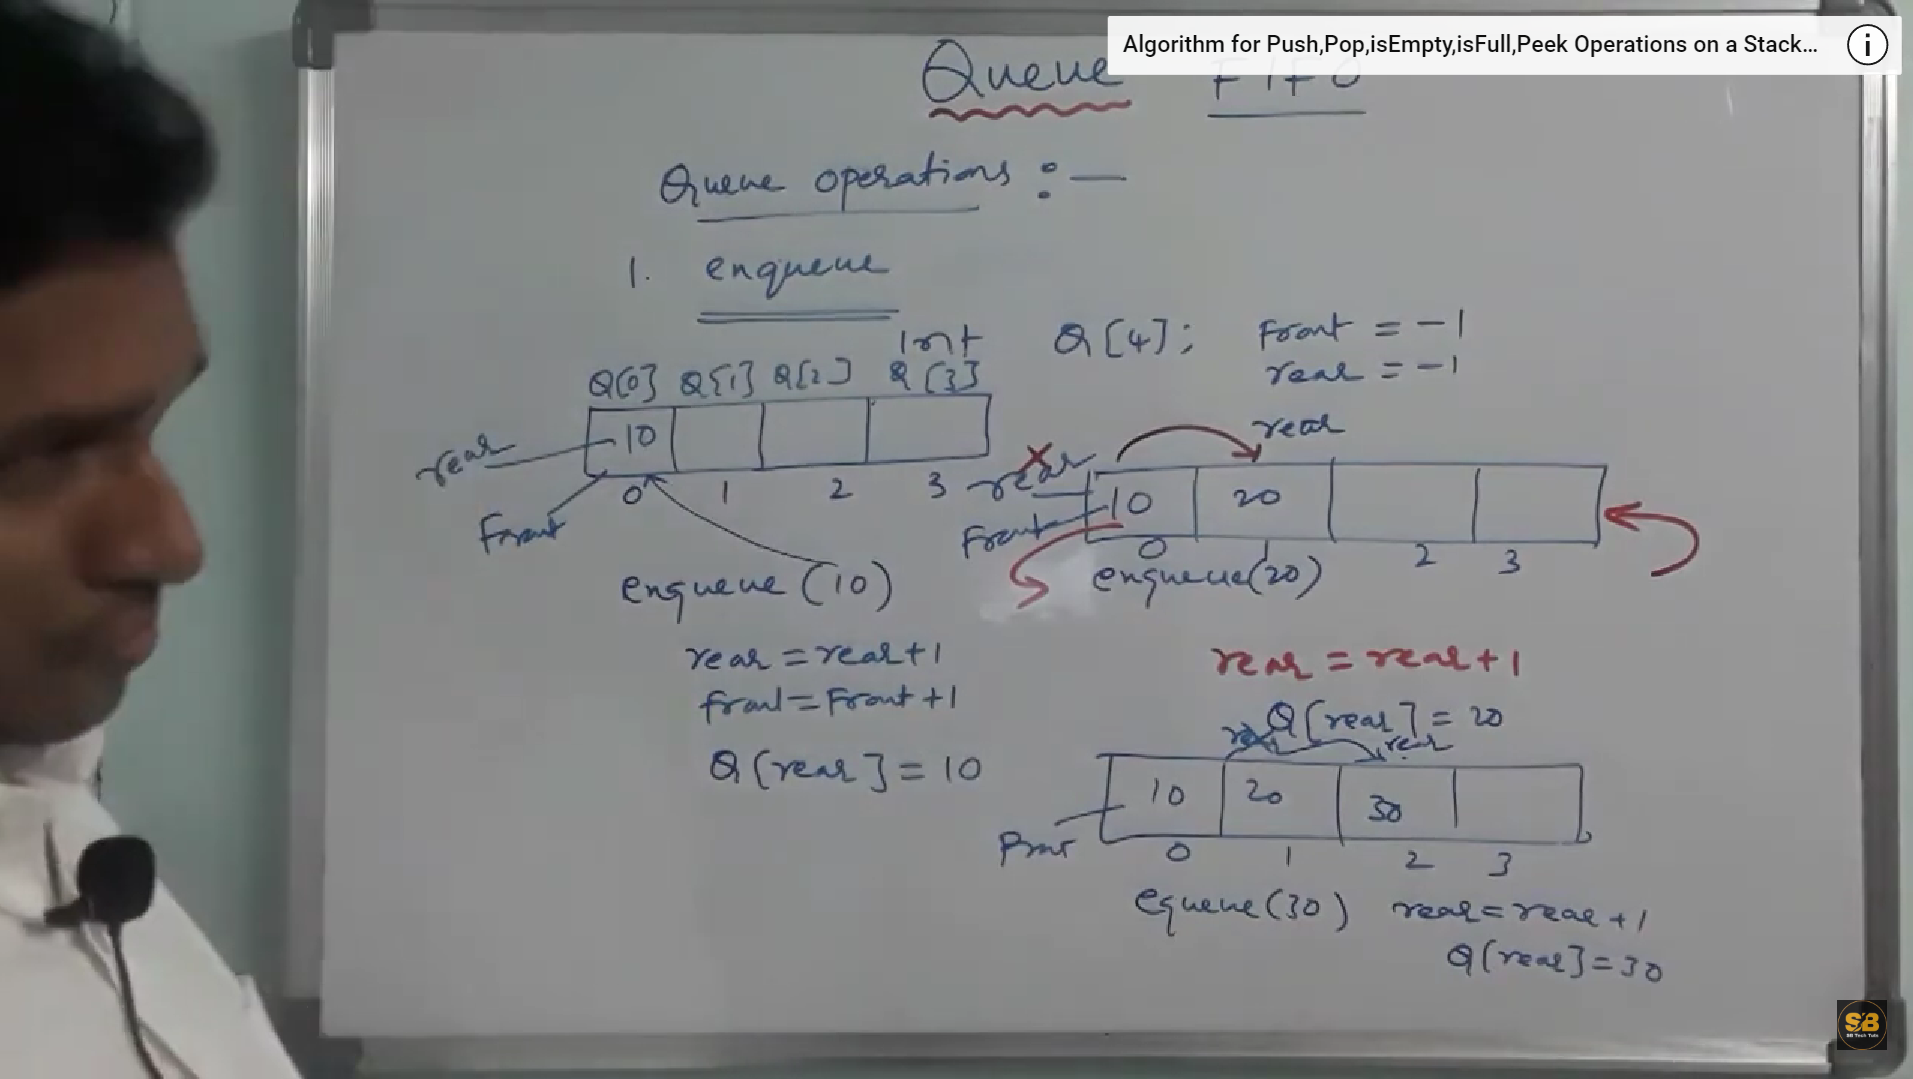 Algorithm for Push,Pop,isEmpty,isFull,Peek Operations on a Stack...
Queue FIFO
Queue operations :—
1. enqueue
int Q[4]; Front = -1
rear = -1
Q[0] Q[1] Q[2] Q[3]
rear 10
Front 0 1 2 3
enqueue (10)
rear = rear+1
front = Front +1
Q[rear] = 10
rear
rear
Front 10 20
0 1 2 3
enqueue(20)
rear = rear + 1
Q[rear] = 20
rear rear
10 20 30
Front 0 1 2 3
equeue(30) rear = rear + 1
Q[rear] = 30
SB
SB Tech Tuts